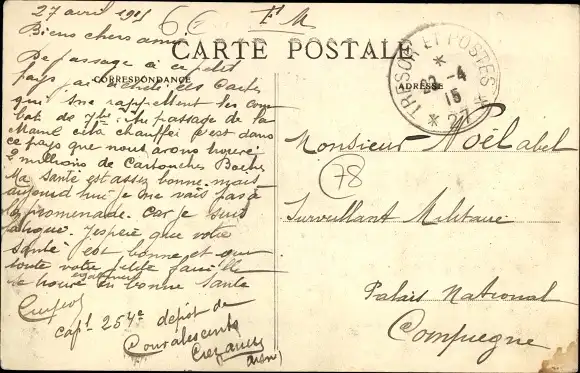 27 avril 1915
F M
Biens chers amis
CARTE POSTALE
CORRESPONDANCE
ADRESSE
De passage à ce petit
pays j'ai acheté des Cartes
qui me rappellent les com
bat de 7bre. Au passage de la
Marne cela chauffei c'est dans
ce pays que nous avons trouvé
2 millions de Cartouches Boches
Ma santé est assez bonne mais
aujourd hui je ne vais pas à
la promenade. car je suis
fatigué. J'espère que votre
santé est bonne et que
toute votre petite famille
se trouve également en bonne santé
capl 254e dépot de
Convalescents
TRESOR ET POSTES
-4
15
* 27 *
Monsieur Noël abel
78
Surveillant Militaire
Palais National
Compiegne